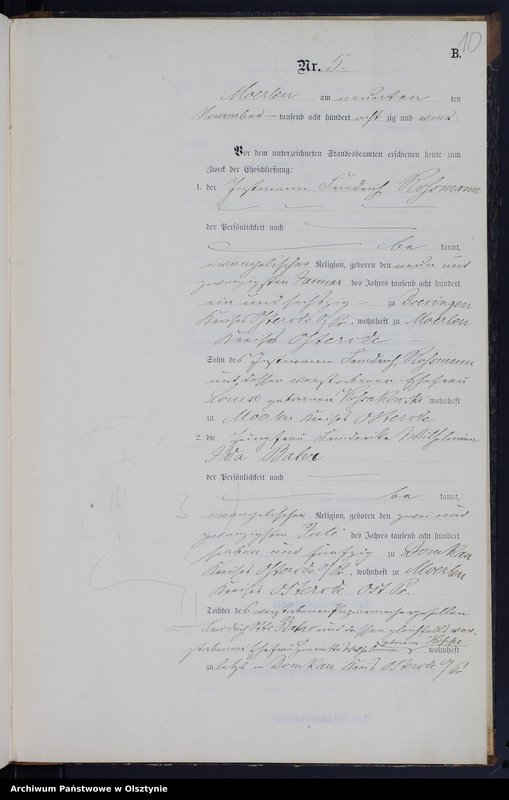 10
B.
Nr. 5.
Moerlen am neunten ten
November tausend acht hundert acht zig und
Vor dem unterzeichneten Standesbeamten erschienen heute zum
Zweck der Eheschließung:
1. der Instmann Friedrich Rossmann
der Persönlichkeit nach
be kannt,
evangelischer Religion, geboren den neun und
zwanzigsten Januar des Jahres tausend acht hundert
ein und sechszig zu Doeringen
Kreises Osterode O/Pr., wohnhaft zu Moerlen
Kreises Osterode
Sohn des Instmann Friedrich Rossmann
und dessen verstorbenen Ehefrau
Louise geborenen wohnhaft
zu Moerlen Kreises Osterode
2. die Jungfrau Friederike Wilhelmine
Ida
der Persönlichkeit nach
be kannt,
evangelischer Religion, geboren den zwei und
zwanzigsten Juli des Jahres tausend acht hundert
sieben und fünfzig zu Domkau
Kreises Osterode O/Pr., wohnhaft zu Moerlen
Kreises Osterode Ost.Pr.
Tochter des verstorbenen
Friedrich und dessen gleichfalls ver-
geborenen
storbenen Ehefrau Henriette Wilhelmine wohnhaft
zuletzt in Domkau Kreis Osterode O/Pr.
Archiwum Państwowe w Olsztynie